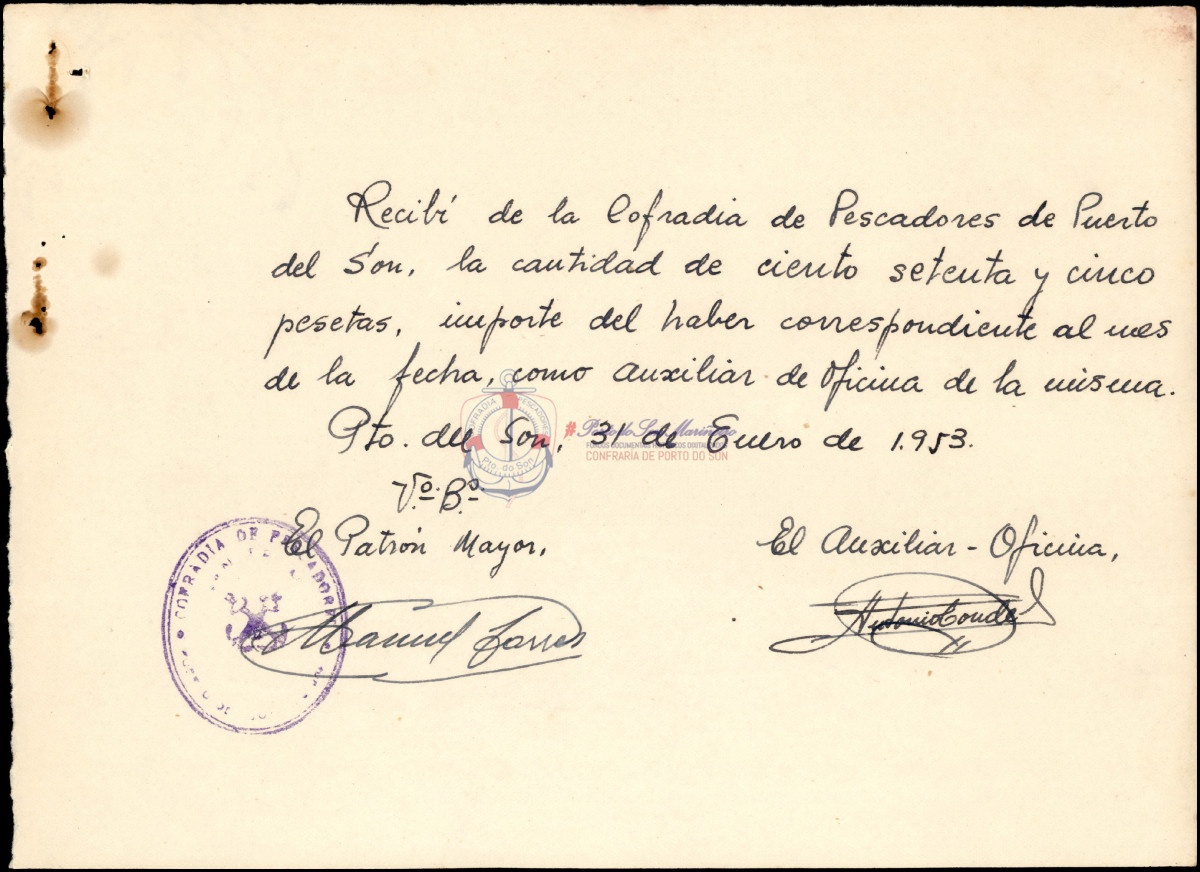 Recibí de la Cofradia de Pescadores de Puerto
del Son, la cantidad de ciento setenta y cinco
pesetas, importe del haber correspondiente al mes
de la fecha, como auxiliar de Oficina de la misma.
Pto. del Son, 31 de Enero de 1.953.
COFRADIA PESCADORES
Pto. do Son
CONFRARÍA DE PORTO DO SON
Vº. Bº.
El Patrón Mayor,
El Auxiliar-Oficina,
COFRADIA DE PESCADORES
Manuel Torres
Antonio Conde